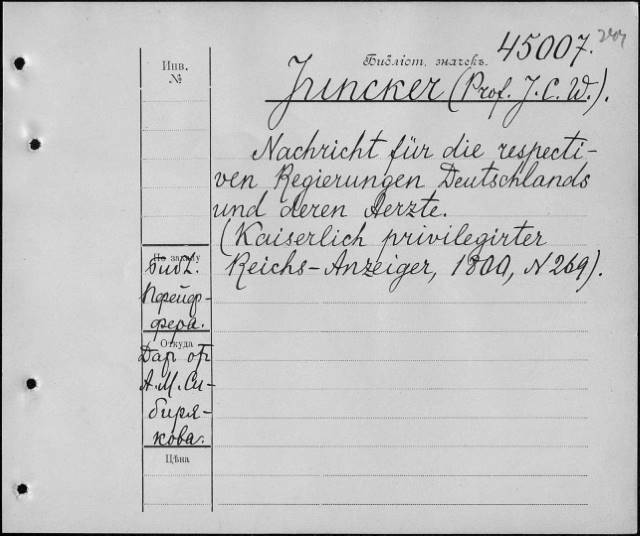 45007.
Инв.
№
Библіот. значекъ.
Juncker (Prof. J. C. W.).
Nachricht für die respecti-
ven Regierungen Deutschlands
und deren Aerzte.
(Kaiserlich privilegirter
Reichs-Anzeiger, 1800, N 269).
По заказу
Библ.
Пфейф-
фера.
Откуда
Дар от
А. М. Си-
биря-
кова.
Цѣна